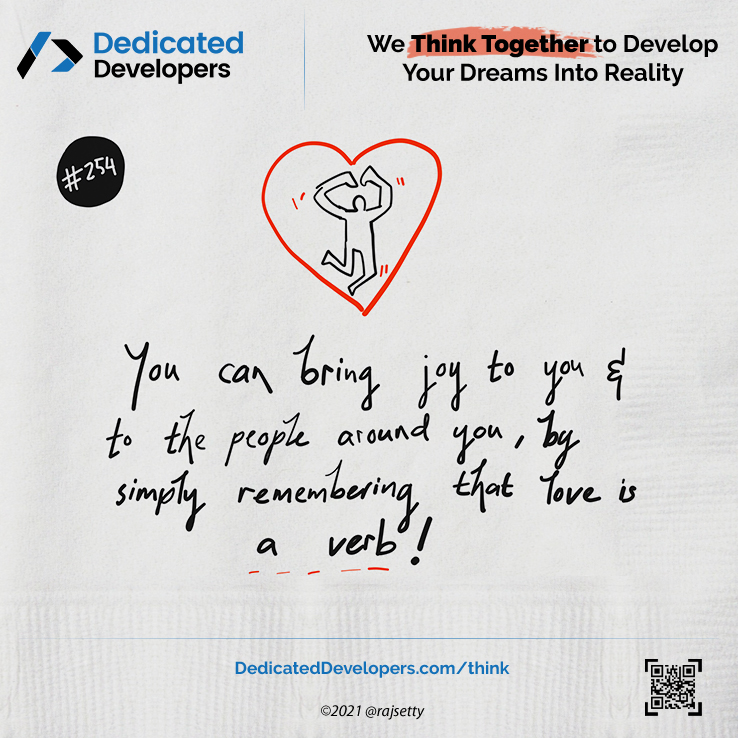 Dedicated
Developers
We Think Together to Develop
Your Dreams Into Reality
#254
You can bring joy to you &
to the people around you, by
simply remembering that love is
a verb!
DedicatedDevelopers.com/think
©2021 @rajsetty